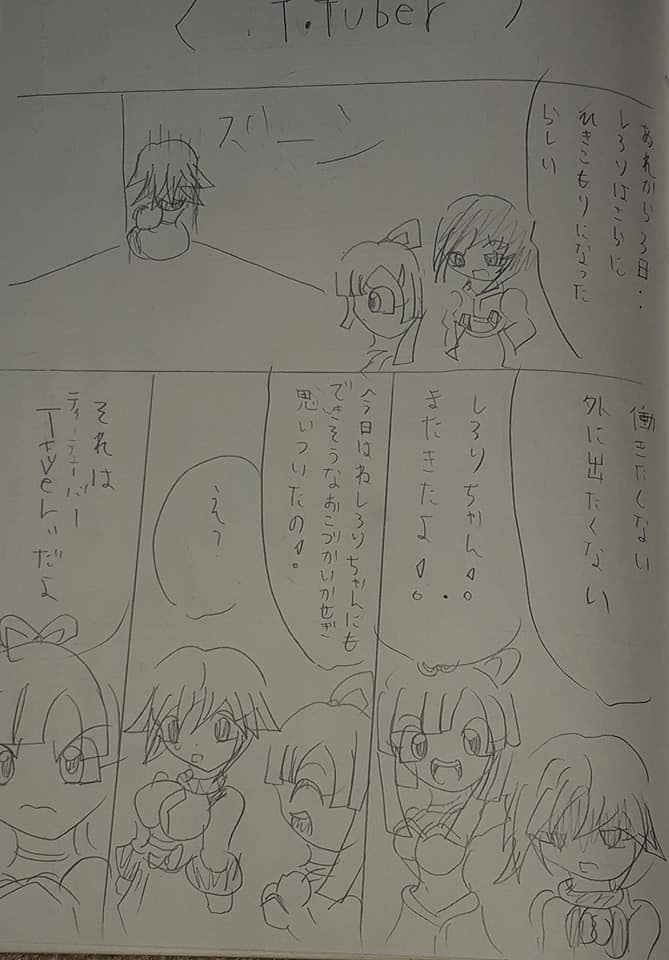 T.Tuber
あれから3日‥
しろりはさらに
ひきこもりになった
らしい
スリーン
働きたくない
外に出たくない
しろりちゃん!。
またきたよ!。
今日はねしろりちゃんにも
できそうなおこづかいかせぎ
思いついたの!。
え?
それは
ティーテューバー
だよ